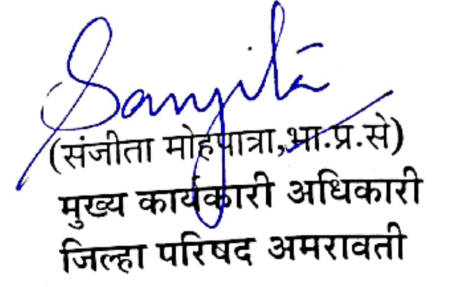 Sanjita
(संजीता मोहपात्रा,भा.प्र.से)
मुख्य कार्यकारी अधिकारी
जिल्हा परिषद अमरावती